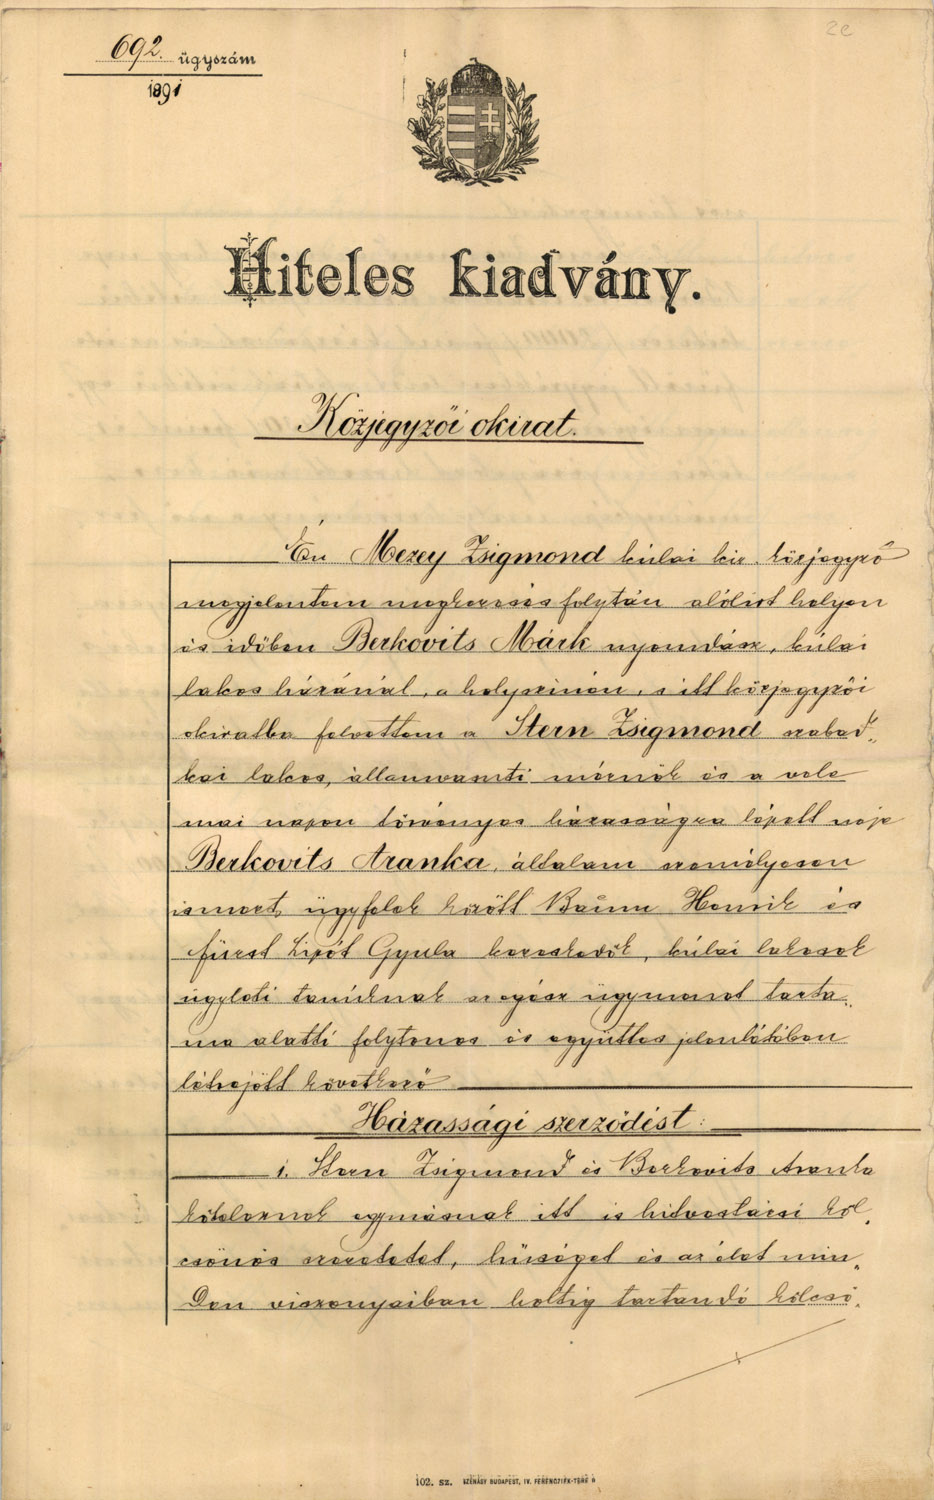 2e
692. ügyszám
1891
Hiteles kiadvány.
Közjegyzői okirat.
Én Mezey Zsigmond kúlai kir. közjegyző
megjelentem megkeresés folytán alólirt helyen
és időben Berkovits Márk nyomdász, kúlai
lakos házánál, a helyszinén, s itt közjegyzői
okiratba felvettem a Stern Zsigmond szabad„
kai lakos, államvasuti mérnök és a vele
mai napon törvényes házasságra lépett neje
Berkovits Aranka, általam személyesen
ismert, ügyfelek között Baum Henrik és
fürst Lipót Gyula kereskedők, kúlai lakosok
ügyleti tanúknak az egész ügymenet tarta„
ma alatti folytonos és együttes jelenlétében
létrejött következő
Házassági szerződést:
1. Stern Zsigmond és Berkovits Aranka
köteleznek egymásnak itt is hitvestársi köl„
csönös szeretetet, hüséget és az élet min„
den viszonyaiban holtig tartandó kölcsö„
102. sz. SZÉNÁSY BUDAPEST, IV. FERENCZIEK-TERE 9